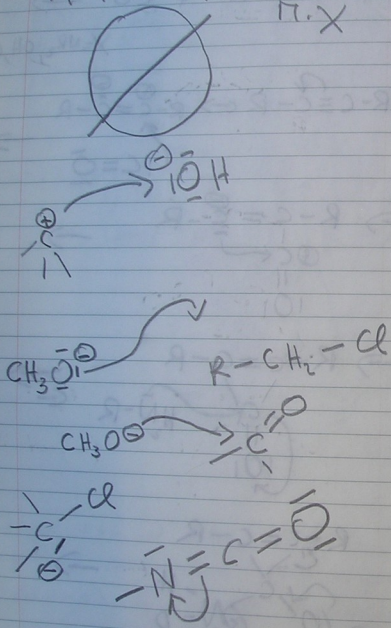 π.χ
⊖ |OH
⊕
C
CH₃O|⊖
R-CH₂-Cl
CH₃O⊖
C=O
C-Cl
⊖
N=C=O